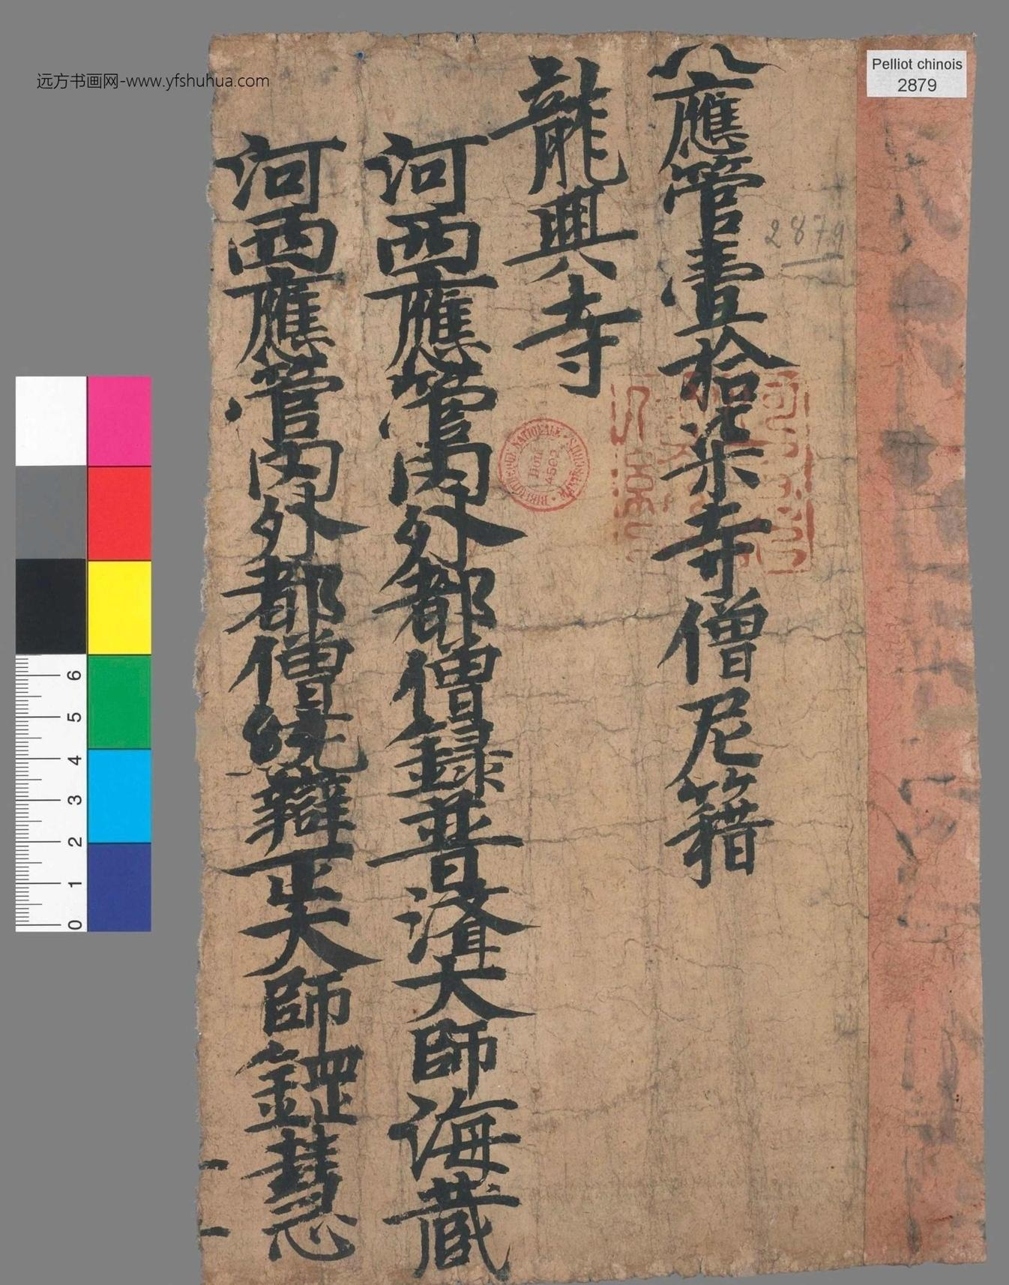 Pelliot chinois
2879
2879
應管壹拾柒寺僧尼籍
龍興寺
河西應管內外都僧録普濟大師海藏
河西應管內外都僧統辯正大師鋼慧
远方书画网-www.yfshuhua.com
6
5
4
3
2
1
0